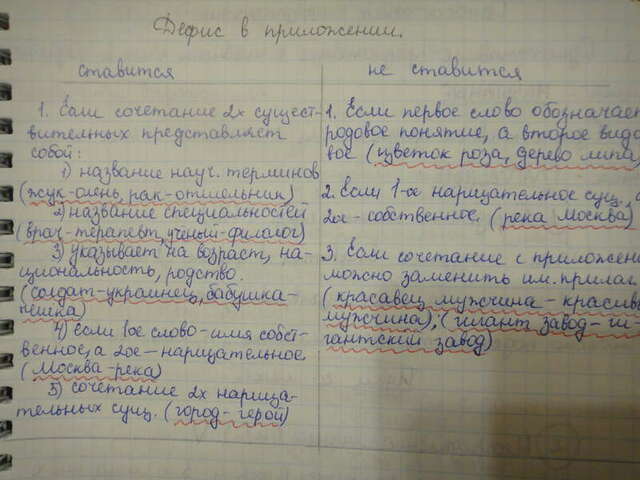 Дефис в приложении.
ставится
1. Если сочетание 2х сущест-
вительных представляет
собой:
1) название науч. терминов
(жук-олень, рак-отшельник)
2) название специальностей
(врач-терапевт, ученый-филолог)
3) указывает на возраст, на-
циональность, родство.
(солдат-украинец, бабушка-
4) если 1ое слово-имя собст-
венное, а 2ое - нарицательное
(Москва-река)
5) сочетание 2х нарица-
тельных сущ. (город-герой)
не ставится
1. Если первое слово обозначает
родовое понятие, а второе видо
вое (цветок роза, дерево липа)
2. Если 1-ое нарицательное сущ, а
2ое - собственное. (река Москва)
3. Если сочетание с приложени
можно заменить им. прилаг.
(красавец мужчина - красивы
мужчина), (гигант завод - ги-
гантский завод)